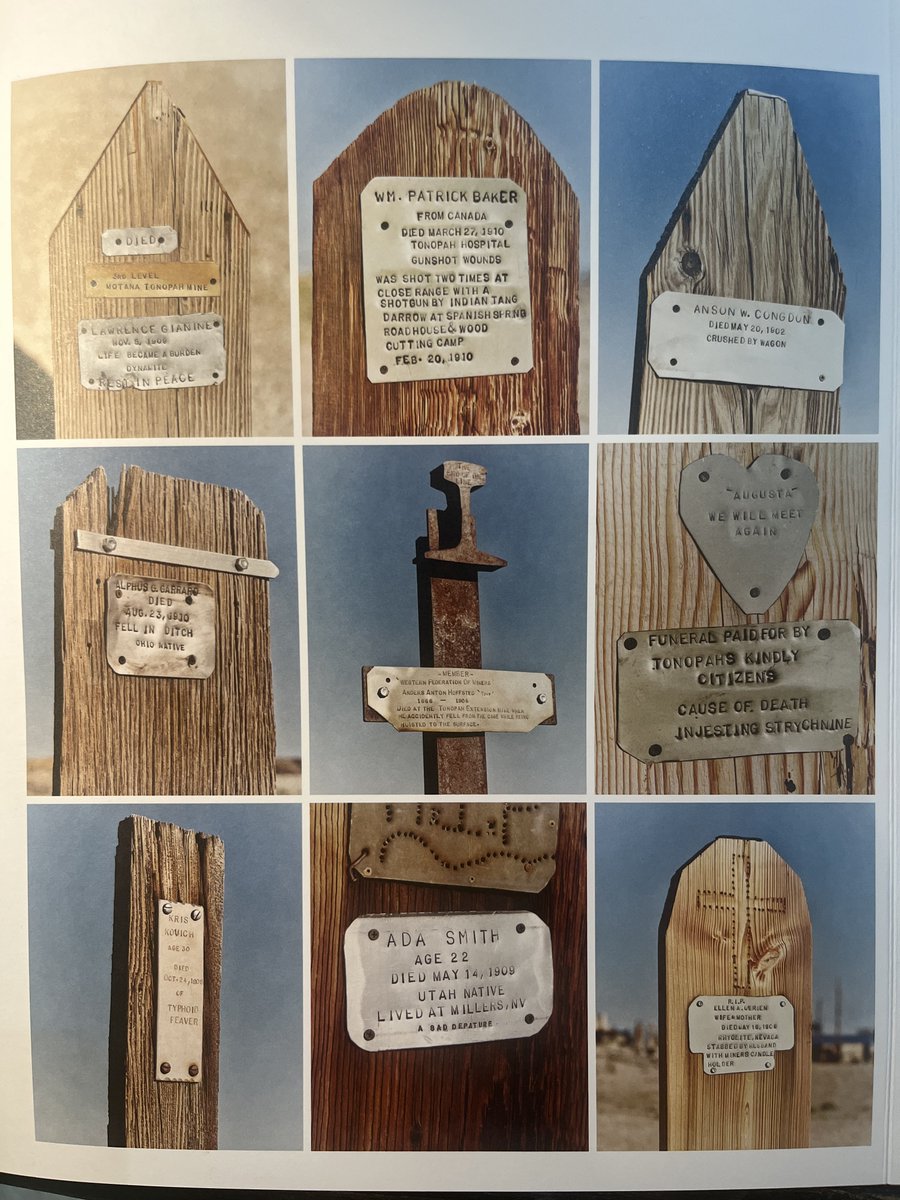 DIED
3RD LEVEL
MOTANA TONOPAH MINE
LAWRENCE GIANINE
NOV. 5, 1909
LIFE BECAME A BURDEN
DYNAMITE
REST IN PEACE
WM. PATRICK BAKER
FROM CANADA
DIED MARCH 27, 1910
TONOPAH HOSPITAL
GUNSHOT WOUNDS
WAS SHOT TWO TIMES AT
CLOSE RANGE WITH A
SHOTGUN BY INDIAN TANG
DARROW AT SPANISH SPRNG
ROADHOUSE & WOOD
CUTTING CAMP
FEB. 20, 1910
ANSON W. CONGDON
DIED MAY 20, 1902
CRUSHED BY WAGON
ALPHUS G. GARRARD
DIED
AUG. 23, 1910
FELL IN DITCH
OHIO NATIVE
THE
END OF THE
LINE
-MEMBER-
WESTERN FEDERATION OF MINERS
ANDERS ANTON HOFFSTED
DIED AT THE TONOPAH EXTENSION MINE WHEN
HE ACCIDENTLY FELL FROM THE CAGE WHILE BEING
HOISTED TO THE SURFACE.
"AUGUSTA"
WE WILL MEET
AGAIN
FUNERAL PAID FOR BY
TONOPAHS KINDLY
CITIZENS
CAUSE OF DEATH
INJESTING STRYCHNINE
KRIS
KOVICH
AGE 30
DIED
OCT. 24,
OF
TYPHOID
FEAVER
ADA SMITH
AGE 22
DIED MAY 14, 1909
UTAH NATIVE
LIVED AT MILLERS, NV
A SAD DEPATURE
R.I.P.
ELLEN A. OBRIEN
WIFE & MOTHER
DIED MAY 16, 1908
RHYOLITE, NEVADA
STABBED BY HUSBAND
WITH MINERS CANDLE
HOLDER